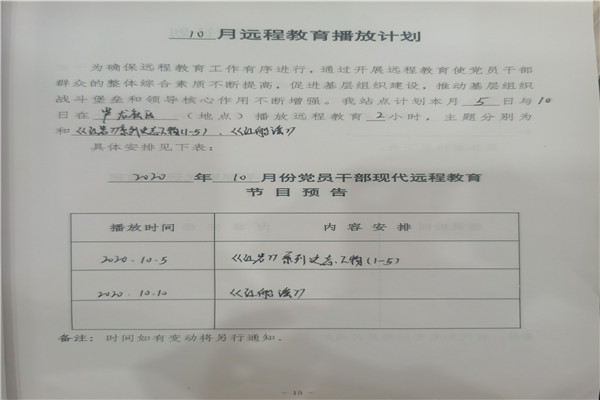 10 月远程教育播放计划
为确保远程教育工作有序进行，通过开展远程教育使党员干部
群众的整体综合素质不断提高，促进基层组织建设，推动基层组织
战斗堡垒和领导核心作用不断增强。我站点计划本月 5 日与10
日在（地点）播放远程教育 2 小时，主题分别为
和《江岩》系列(1-5)、《江》
具体安排见下表：
2020 年 10 月份党员干部现代远程教育
节目预告
播放时间 内容安排
2020.10.5 系列人物(1-5)
2020.10.10
备注：时间如有变动将另行通知。
- 10 -